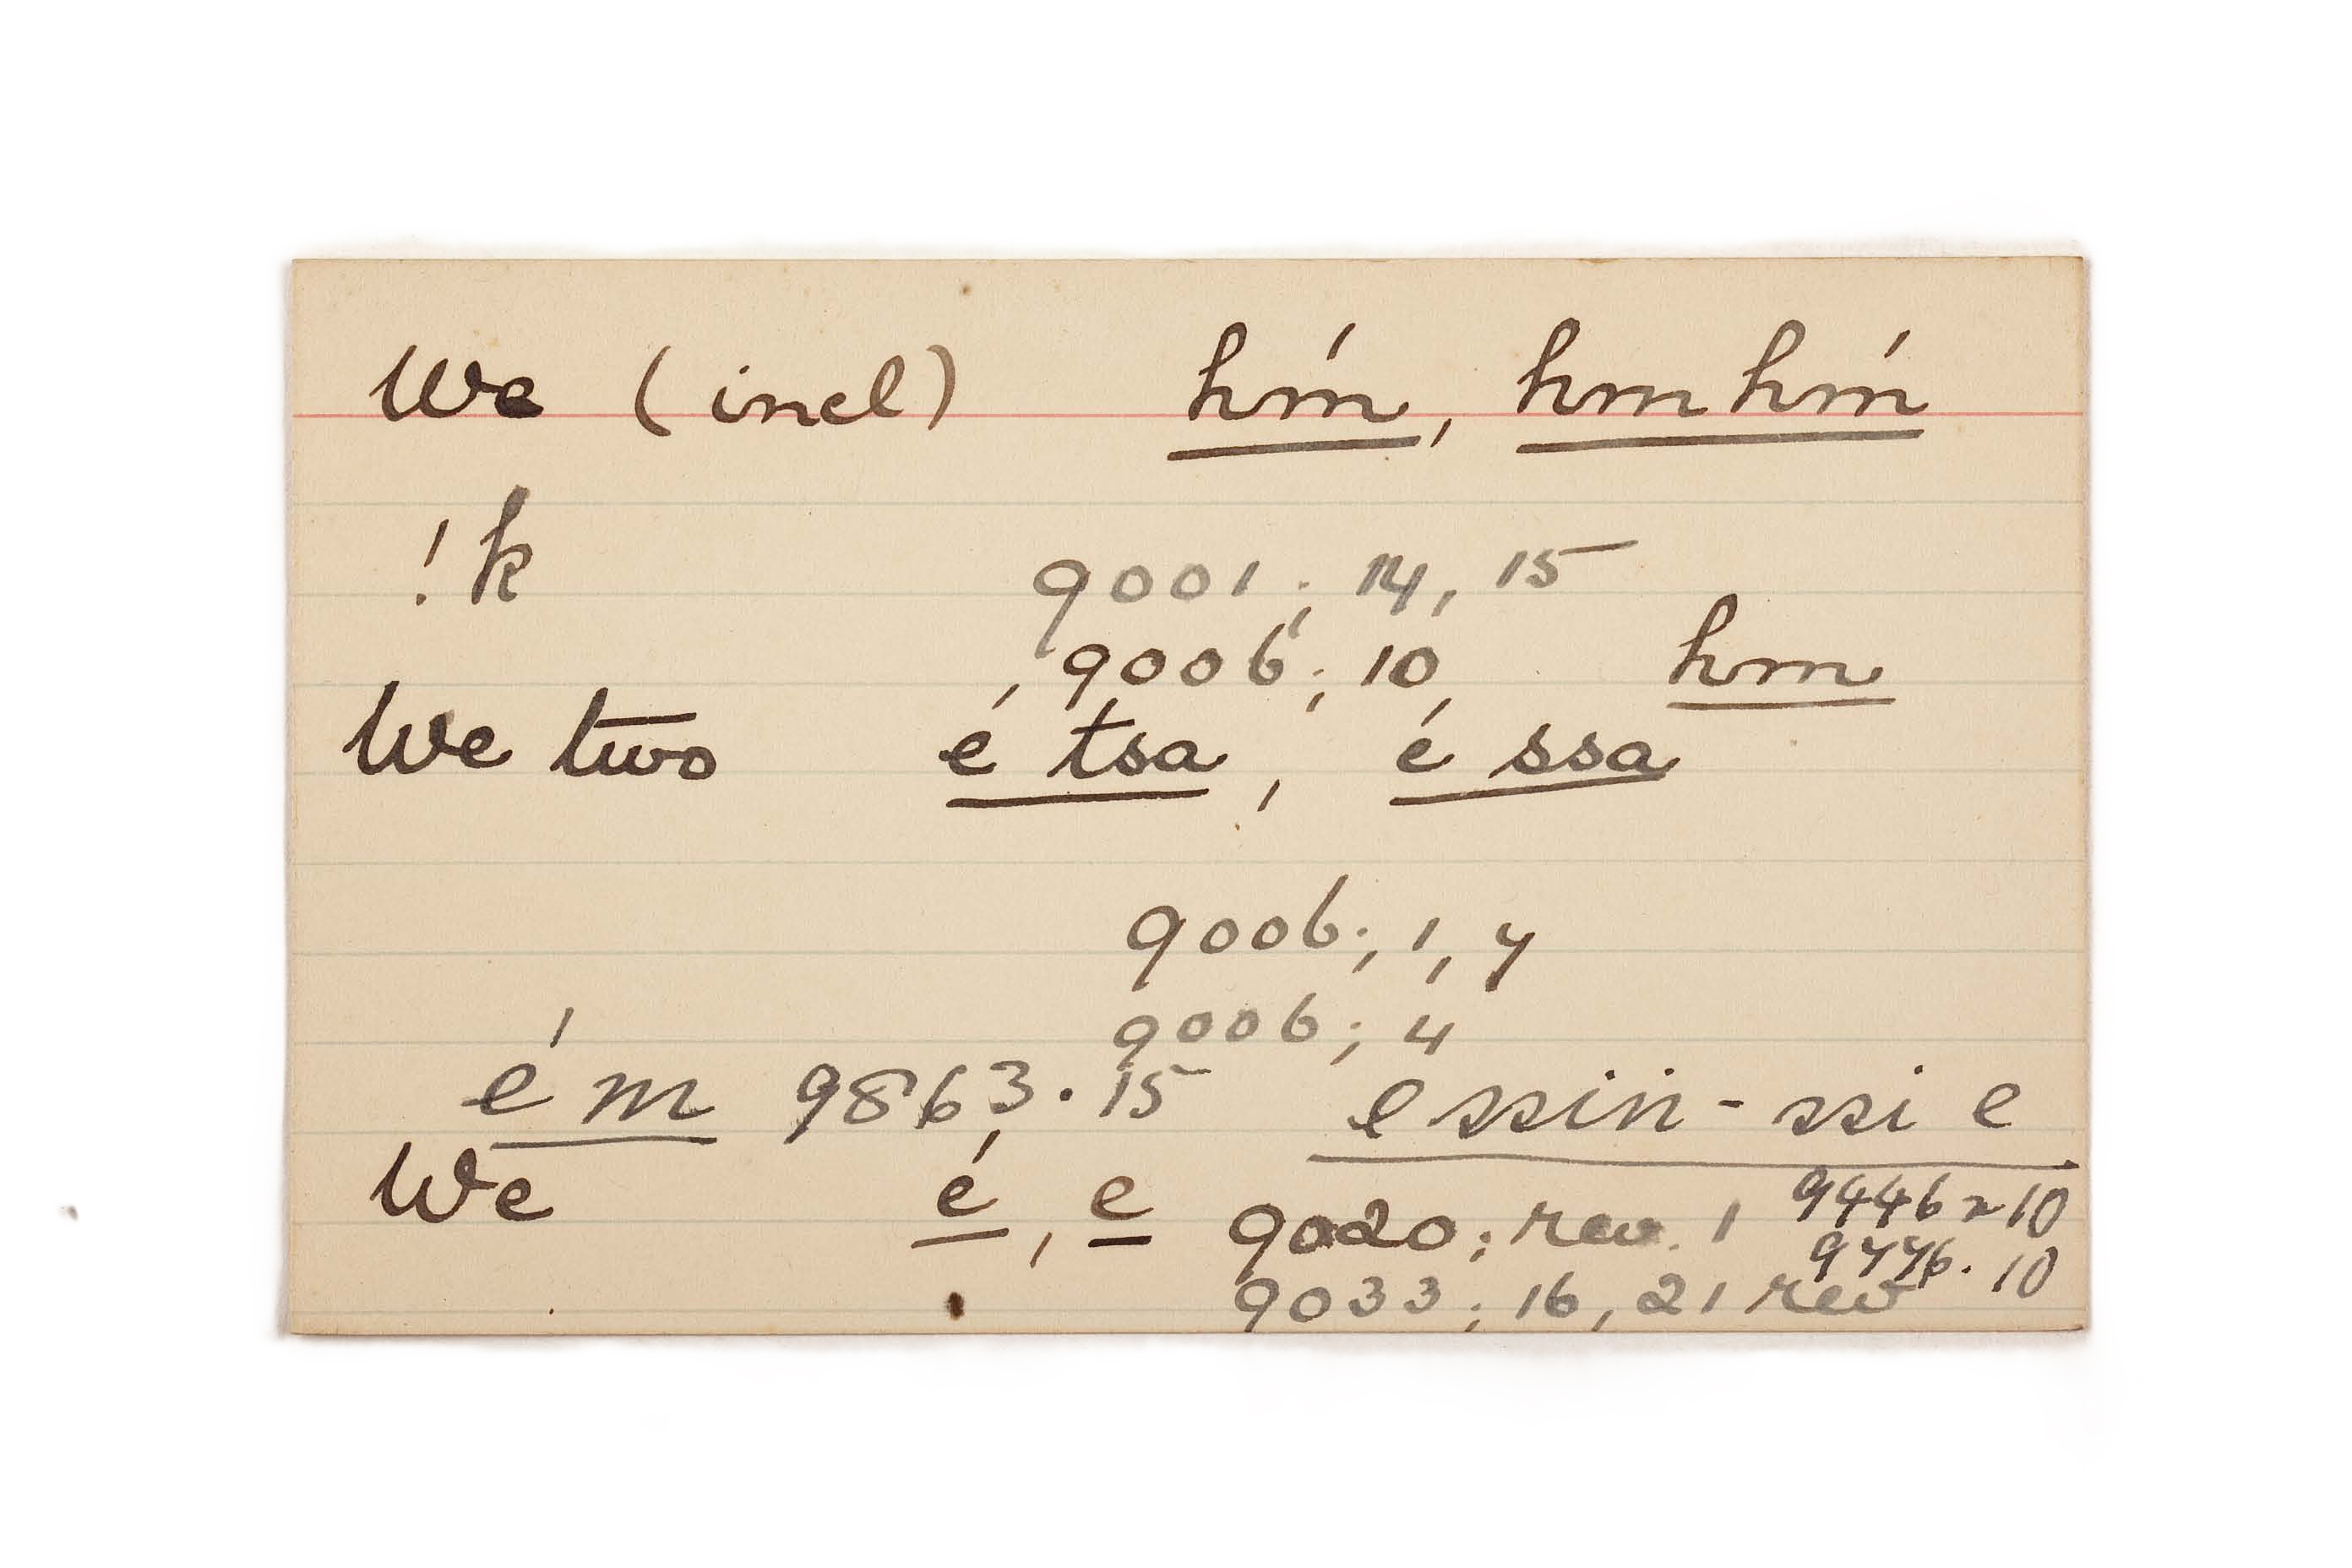 We (incl) hḿ, hmhḿ
!k
9001; 14, 15
9006; 10 hm
We two é tsa, é ssa
9006; 1, 7
9006; 4
é m 9863.15 e ssin-ssi e
We é, e 9020; rev. 1 9446 10
9776. 10
9033; 16, 21 rev